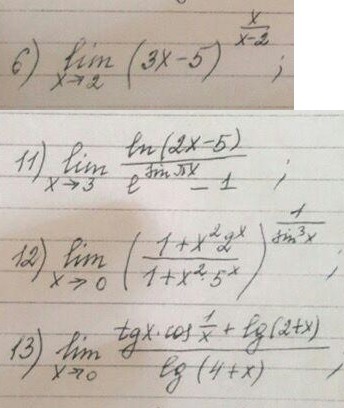 6) lim x→2 (3x-5)^(x/(x-2)) ;
11) lim x→3 ln(2x-5)/(e^(sin πx) - 1) ;
12) lim x→0 ((1+x²2ˣ)/(1+x²·5ˣ))^(1/sin³x) ;
13) lim x→0 (tgx·cos 1/x + lg(2+x))/(lg(4+x)) ,